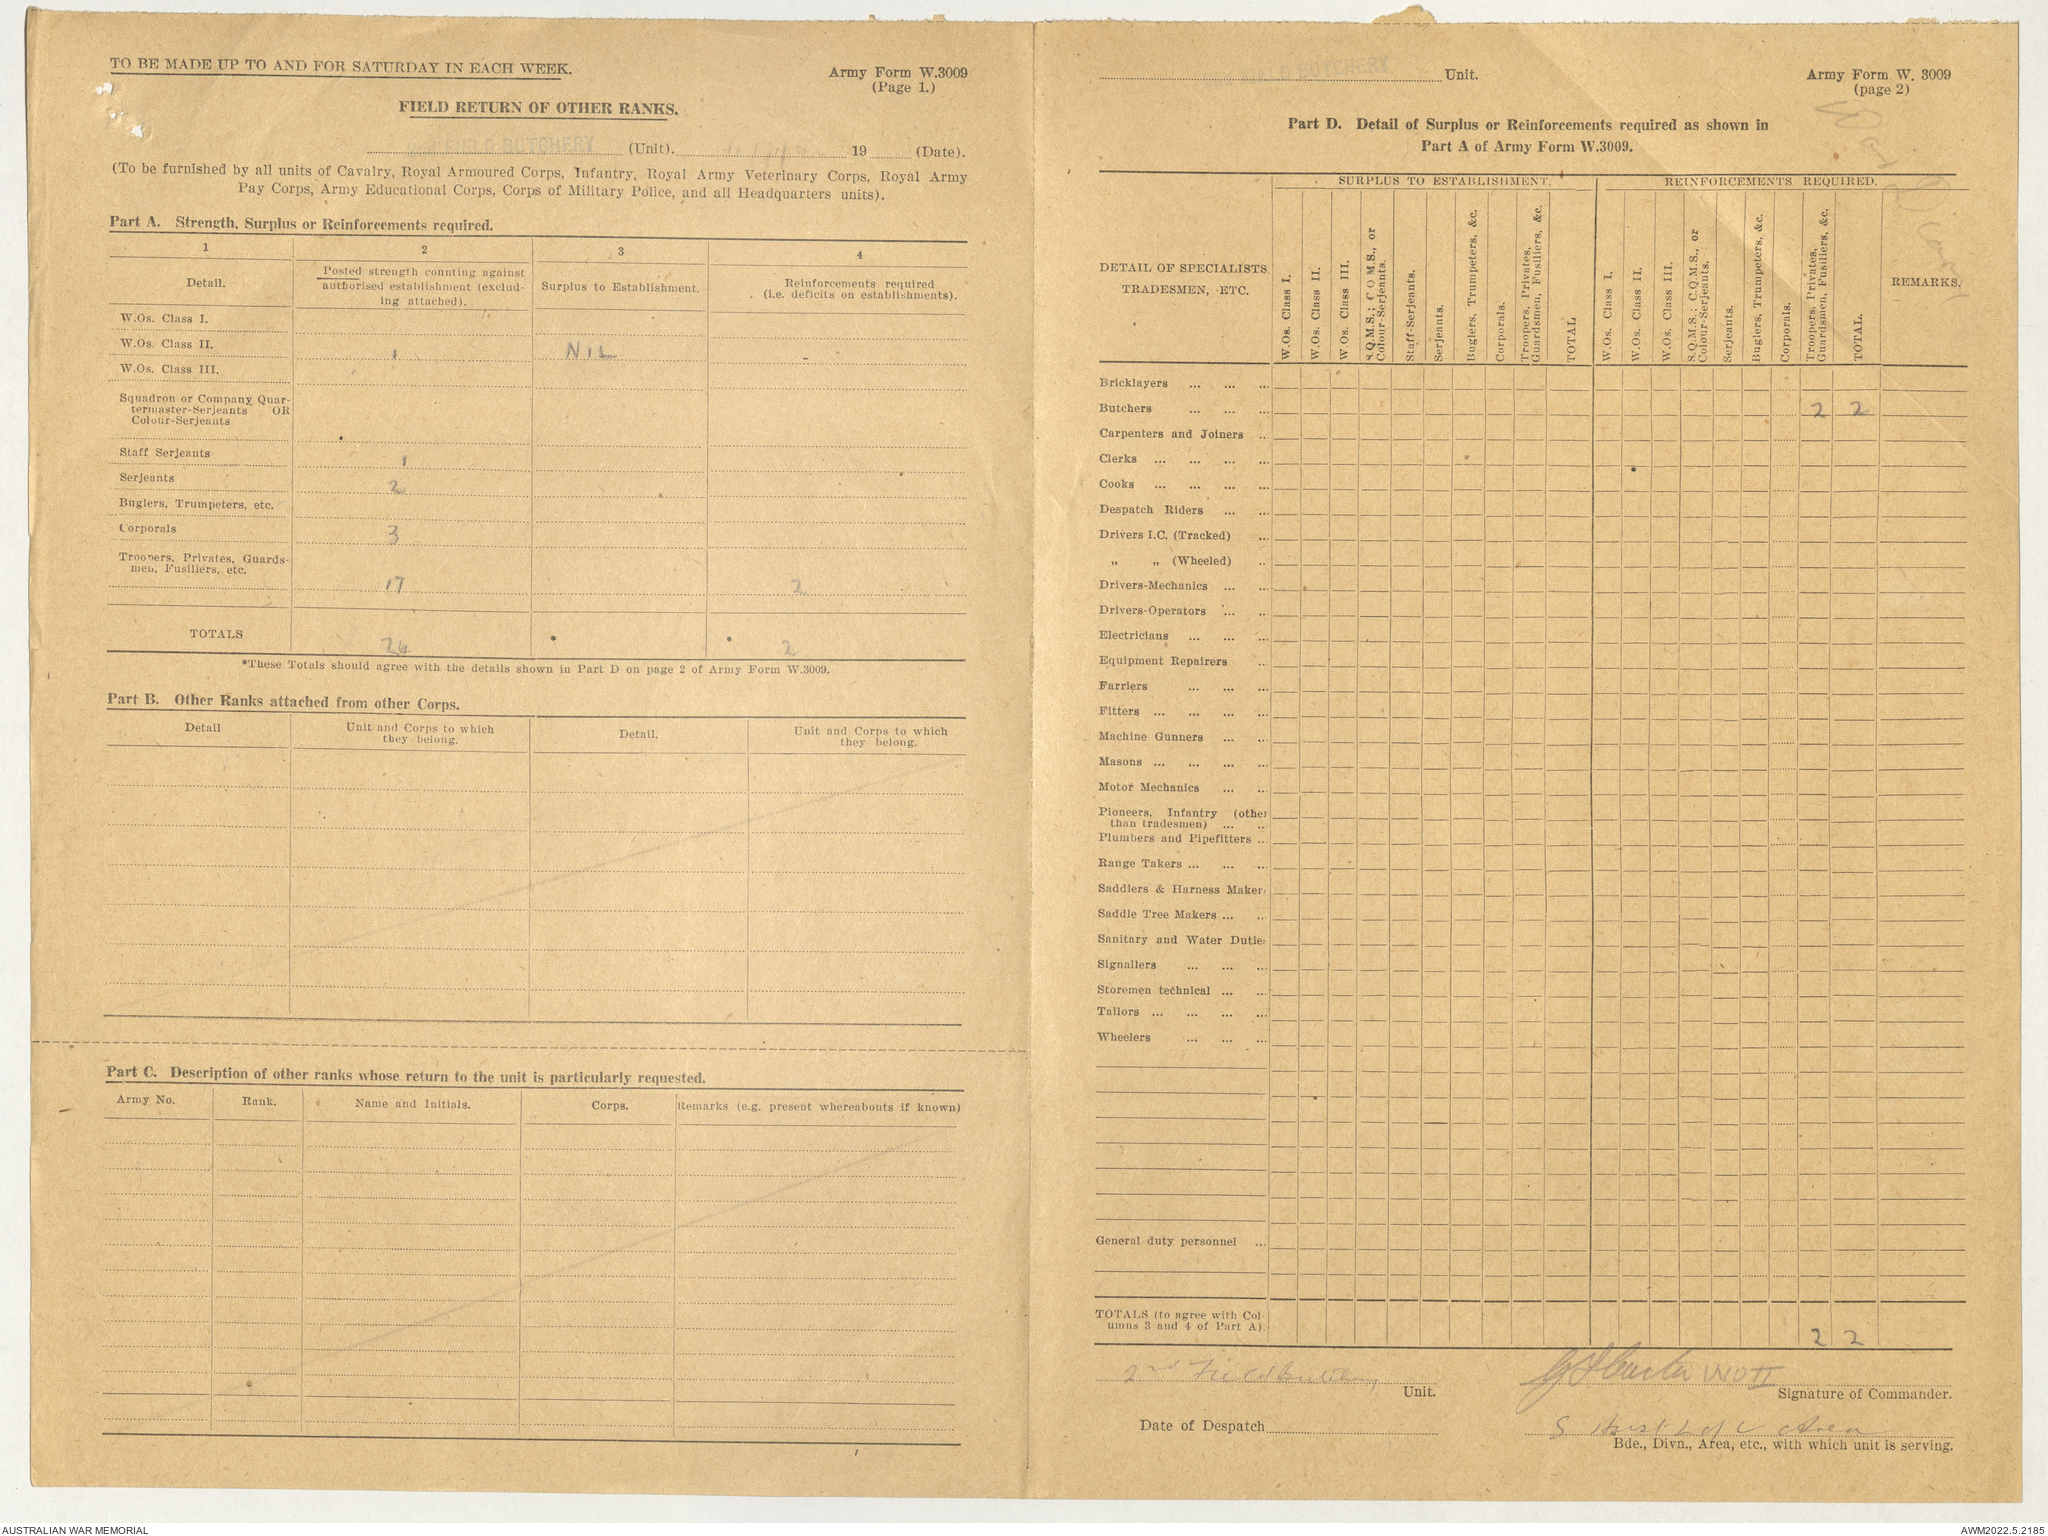 TO BE MADE UP TO AND FOR SATURDAY IN EACH WEEK.
Army Form W.3009
(Page 1.)
FIELD RETURN OF OTHER RANKS.
FIELD BUTCHERY (Unit). 19 (Date).
(To be furnished by all units of Cavalry, Royal Armoured Corps, Infantry, Royal Army Veterinary Corps, Royal Army
Pay Corps, Army Educational Corps, Corps of Military Police, and all Headquarters units).
Part A. Strength, Surplus or Reinforcements required.
1 2 3 4
Detail.
Posted strength counting against
authorised establishment (exclud-
ing attached).
Surplus to Establishment.
Reinforcements required
(i.e. deficits on establishments).
W.Os. Class I.
W.Os. Class II. 1 NIL -
W.Os. Class III.
Squadron or Company Quar-
termaster-Serjeants OR
Colour-Serjeants
Staff Serjeants 1
Serjeants 2
Buglers, Trumpeters, etc.
Corporals 3
Troopers, Privates, Guards-
men, Fusiliers, etc.
17 2
TOTALS 24 * * 2
*These Totals should agree with the details shown in Part D on page 2 of Army Form W.3009.
Part B. Other Ranks attached from other Corps.
Detail
Unit and Corps to which
they belong.
Detail.
Unit and Corps to which
they belong.
Part C. Description of other ranks whose return to the unit is particularly requested.
Army No. Rank. Name and Initials. Corps. Remarks (e.g. present whereabouts if known)
FIELD BUTCHERY Unit.
Army Form W. 3009
(page 2)
War Diary
Part D. Detail of Surplus or Reinforcements required as shown in
Part A of Army Form W.3009.
DETAIL OF SPECIALISTS,
TRADESMEN, ETC.
SURPLUS TO ESTABLISHMENT.
W.Os. Class I.
W.Os. Class II.
W.Os. Class III.
S.Q.M.S.; C.Q.M.S., or
Colour-Serjeants.
Staff-Serjeants.
Serjeants.
Buglers, Trumpeters, &c.
Corporals.
Troopers, Privates,
Guardsmen, Fusiliers, &c.
TOTAL
REINFORCEMENTS REQUIRED.
W.Os. Class I.
W.Os. Class II.
W.Os. Class III.
S.Q.M.S.; C.Q.M.S., or
Colour-Serjeants.
Serjeants.
Buglers, Trumpeters, &c.
Corporals.
Troopers, Privates,
Guardsmen, Fusiliers, &c.
TOTAL.
REMARKS.
Bricklayers ... ... ...
Butchers ... ... ... 2 2
Carpenters and Joiners ..
Clerks ... ... ... ...
Cooks ... ... ... ...
Despatch Riders ... ...
Drivers I.C. (Tracked) ...
„ „ (Wheeled) ..
Drivers-Mechanics ... ...
Drivers-Operators ... ..
Electricians ... ... ...
Equipment Repairers ..
Farriers ... ... ...
Fitters ... ... ... ...
Machine Gunners ... ..
Masons ... ... ... ...
Motor Mechanics ... ..
Pioneers, Infantry (other
than tradesmen) ... ..
Plumbers and Pipefitters ...
Range Takers ... ... ...
Saddlers & Harness Maker
Saddle Tree Makers ... ..
Sanitary and Water Duties
Signallers ... ... ...
Storemen technical ... ...
Tailors ... ... ... ...
Wheelers ... ... ...
General duty personnel ...
TOTALS (to agree with Col-
umns 3 and 4 of Part A). 2 2
2nd Field Butchery Unit.
WO II
Signature of Commander.
Date of Despatch
L of C Area
Bde., Divn., Area, etc., with which unit is serving.
AUSTRALIAN WAR MEMORIAL
AWM2022.5.2185